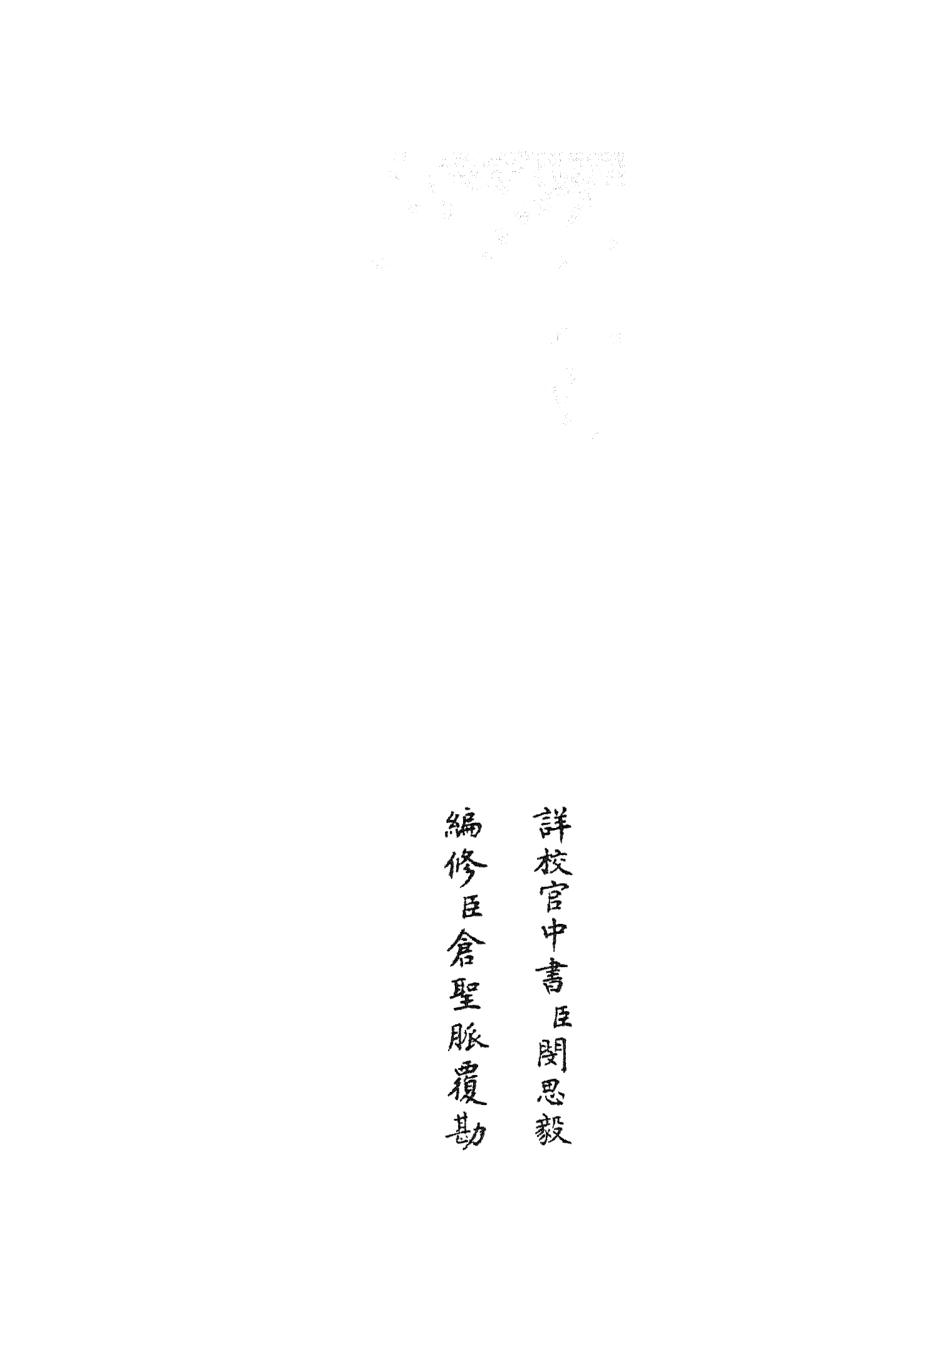 詳校官中書臣閔思毅
編修臣倉聖脈覆勘